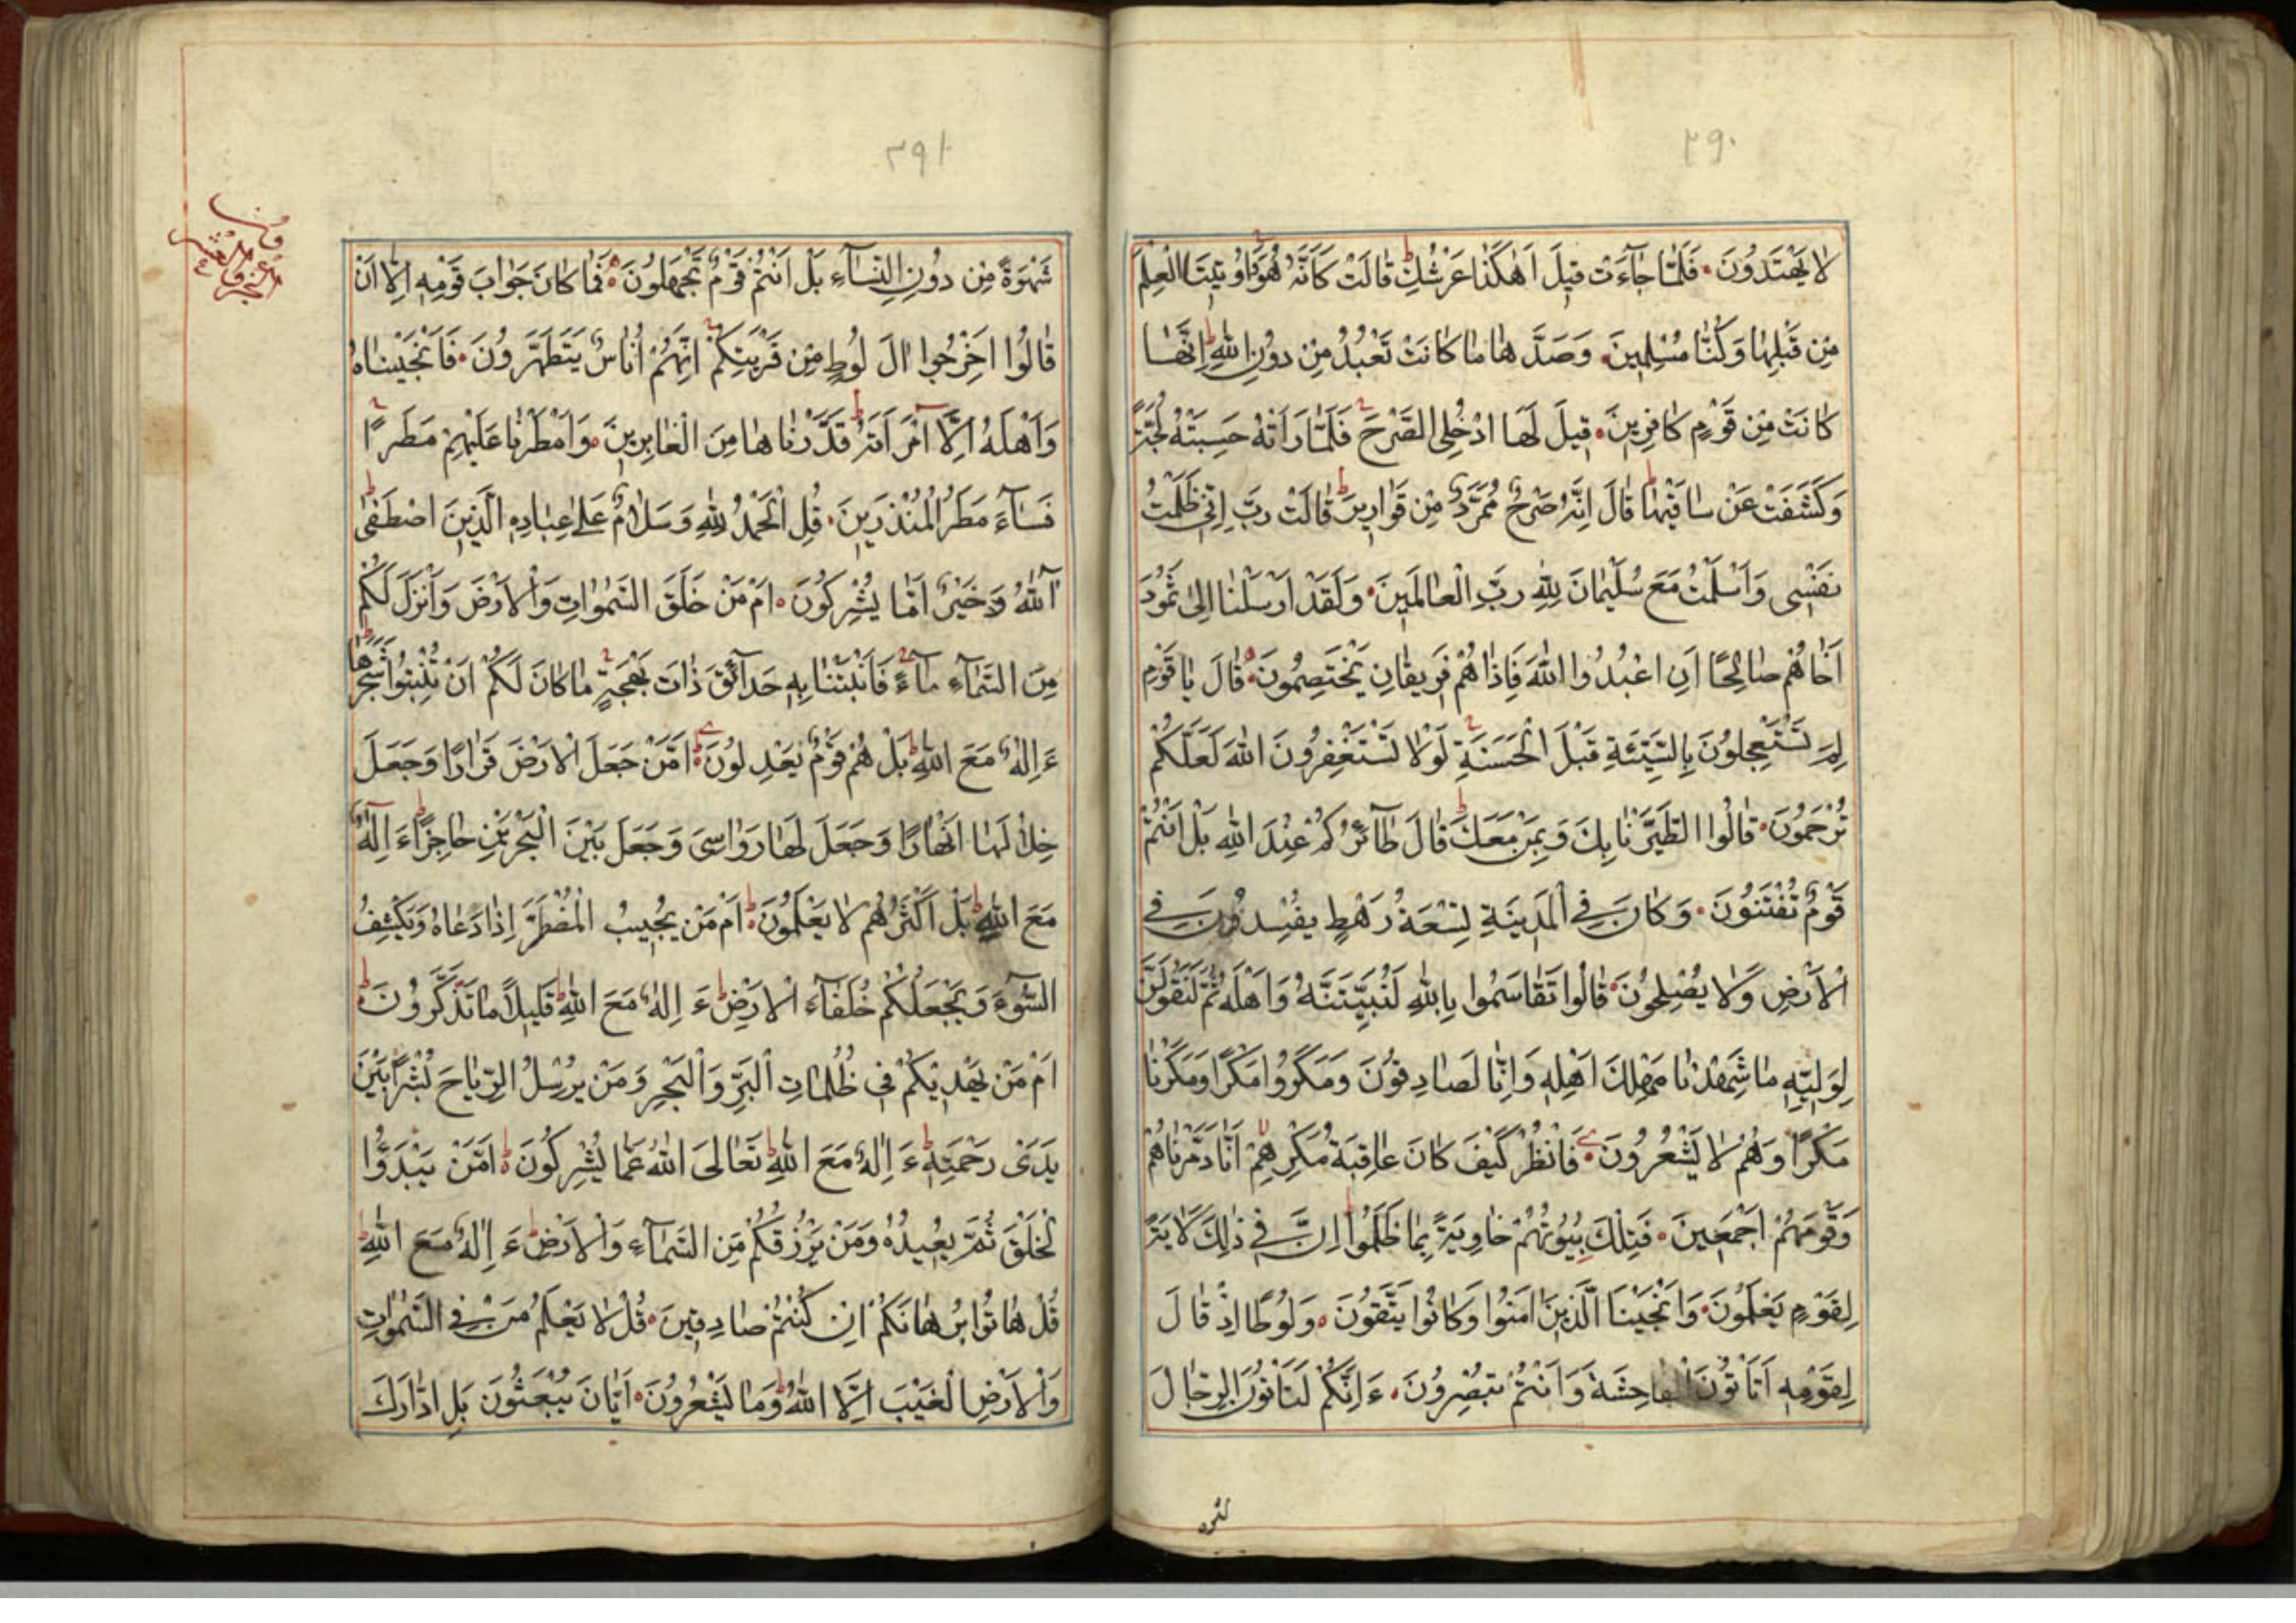 ٢٩٠
لَا يَهْتَدُونَ فَلَمَّا جَآءَتْ قِيلَ اَهٰكَذَا عَرْشُكِ قَالَتْ كَاَنَّهُ هُوَ وَاُوتِينَا الْعِلْمَ
مِنْ قَبْلِهَا وَكُنَّا مُسْلِمِينَ وَصَدَّهَا مَا كَانَتْ تَعْبُدُ مِنْ دُونِ اللّٰهِ اِنَّهَا
كَانَتْ مِنْ قَوْمٍ كَافِرِينَ قِيلَ لَهَا ادْخُلِى الصَّرْحَ فَلَمَّا رَاَتْهُ حَسِبَتْهُ لُجَّةً
وَكَشَفَتْ عَنْ سَاقَيْهَا قَالَ اِنَّهُ صَرْحٌ مُمَرَّدٌ مِنْ قَوَارِيرَ قَالَتْ رَبِّ اِنِّى ظَلَمْتُ
نَفْسِى وَاَسْلَمْتُ مَعَ سُلَيْمَانَ لِلّٰهِ رَبِّ الْعَالَمِينَ وَلَقَدْ اَرْسَلْنَا اِلٰى ثَمُودَ
اَخَاهُمْ صَالِحًا اَنِ اعْبُدُوا اللّٰهَ فَاِذَا هُمْ فَرِيقَانِ يَخْتَصِمُونَ قَالَ يَا قَوْمِ
لِمَ تَسْتَعْجِلُونَ بِالسَّيِّئَةِ قَبْلَ الْحَسَنَةِ لَوْلَا تَسْتَغْفِرُونَ اللّٰهَ لَعَلَّكُمْ
تُرْحَمُونَ قَالُوا اطَّيَّرْنَا بِكَ وَبِمَنْ مَعَكَ قَالَ طَآئِرُكُمْ عِنْدَ اللّٰهِ بَلْ اَنْتُمْ
قَوْمٌ تُفْتَنُونَ وَكَانَ فِى الْمَدِينَةِ تِسْعَةُ رَهْطٍ يُفْسِدُونَ فِى
الْاَرْضِ وَلَا يُصْلِحُونَ قَالُوا تَقَاسَمُوا بِاللّٰهِ لَنُبَيِّتَنَّهُ وَاَهْلَهُ ثُمَّ لَنَقُولَنَّ
لِوَلِيِّهِ مَا شَهِدْنَا مَهْلِكَ اَهْلِهِ وَاِنَّا لَصَادِقُونَ وَمَكَرُوا مَكْرًا وَمَكَرْنَا
مَكْرًا وَهُمْ لَا يَشْعُرُونَ فَانْظُرْ كَيْفَ كَانَ عَاقِبَةُ مَكْرِهِمْ اَنَّا دَمَّرْنَاهُمْ
وَقَوْمَهُمْ اَجْمَعِينَ فَتِلْكَ بُيُوتُهُمْ خَاوِيَةً بِمَا ظَلَمُوا اِنَّ فِى ذٰلِكَ لَاٰيَةً
لِقَوْمٍ يَعْلَمُونَ وَاَنْجَيْنَا الَّذِينَ اٰمَنُوا وَكَانُوا يَتَّقُونَ وَلُوطًا اِذْ قَالَ
لِقَوْمِهِ اَتَأْتُونَ الْفَاحِشَةَ وَاَنْتُمْ تُبْصِرُونَ ءَاِنَّكُمْ لَتَأْتُونَ الرِّجَالَ
٢٩١
شَهْوَةً مِنْ دُونِ النِّسَآءِ بَلْ اَنْتُمْ قَوْمٌ تَجْهَلُونَ فَمَا كَانَ جَوَابَ قَوْمِهِ اِلَّا اَنْ
قَالُوا اَخْرِجُوا اٰلَ لُوطٍ مِنْ قَرْيَتِكُمْ اِنَّهُمْ اُنَاسٌ يَتَطَهَّرُونَ فَاَنْجَيْنَاهُ
وَاَهْلَهُ اِلَّا امْرَاَتَهُ قَدَّرْنَاهَا مِنَ الْغَابِرِينَ وَاَمْطَرْنَا عَلَيْهِمْ مَطَرًا
فَسَآءَ مَطَرُ الْمُنْذَرِينَ قُلِ الْحَمْدُ لِلّٰهِ وَسَلَامٌ عَلٰى عِبَادِهِ الَّذِينَ اصْطَفٰى
آللّٰهُ خَيْرٌ اَمَّا يُشْرِكُونَ اَمْ مَنْ خَلَقَ السَّمٰوَاتِ وَالْاَرْضَ وَاَنْزَلَ لَكُمْ
مِنَ السَّمَآءِ مَآءً فَاَنْبَتْنَا بِهِ حَدَآئِقَ ذَاتَ بَهْجَةٍ مَا كَانَ لَكُمْ اَنْ تُنْبِتُوا شَجَرَهَا
ءَاِلٰهٌ مَعَ اللّٰهِ بَلْ هُمْ قَوْمٌ يَعْدِلُونَ اَمَّنْ جَعَلَ الْاَرْضَ قَرَارًا وَجَعَلَ
خِلَالَهَا اَنْهَارًا وَجَعَلَ لَهَا رَوَاسِىَ وَجَعَلَ بَيْنَ الْبَحْرَيْنِ حَاجِزًا ءَاِلٰهٌ
مَعَ اللّٰهِ بَلْ اَكْثَرُهُمْ لَا يَعْلَمُونَ اَمْ مَنْ يُجِيبُ الْمُضْطَرَّ اِذَا دَعَاهُ وَيَكْشِفُ
السُّوٓءَ وَيَجْعَلُكُمْ خُلَفَآءَ الْاَرْضِ ءَاِلٰهٌ مَعَ اللّٰهِ قَلِيلًا مَا تَذَكَّرُونَ
اَمْ مَنْ يَهْدِيكُمْ فِى ظُلُمَاتِ الْبَرِّ وَالْبَحْرِ وَمَنْ يُرْسِلُ الرِّيَاحَ بُشْرًا بَيْنَ
يَدَىْ رَحْمَتِهِ ءَاِلٰهٌ مَعَ اللّٰهِ تَعَالَى اللّٰهُ عَمَّا يُشْرِكُونَ اَمَّنْ يَبْدَؤُا
الْخَلْقَ ثُمَّ يُعِيدُهُ وَمَنْ يَرْزُقُكُمْ مِنَ السَّمَآءِ وَالْاَرْضِ ءَاِلٰهٌ مَعَ اللّٰهِ
قُلْ هَاتُوا بُرْهَانَكُمْ اِنْ كُنْتُمْ صَادِقِينَ قُلْ لَا يَعْلَمُ مَنْ فِى السَّمٰوَاتِ
وَالْاَرْضِ الْغَيْبَ اِلَّا اللّٰهُ وَمَا يَشْعُرُونَ اَيَّانَ يُبْعَثُونَ بَلِ ادَّارَكَ